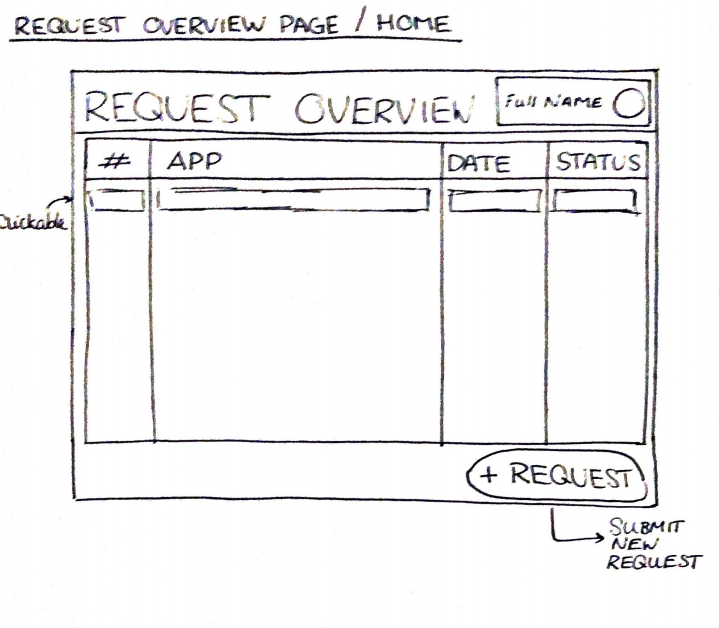 REQUEST OVERVIEW PAGE / HOME
REQUEST OVERVIEW
Full NAME
# APP DATE STATUS
Clickable
+ REQUEST
SUBMIT
NEW
REQUEST